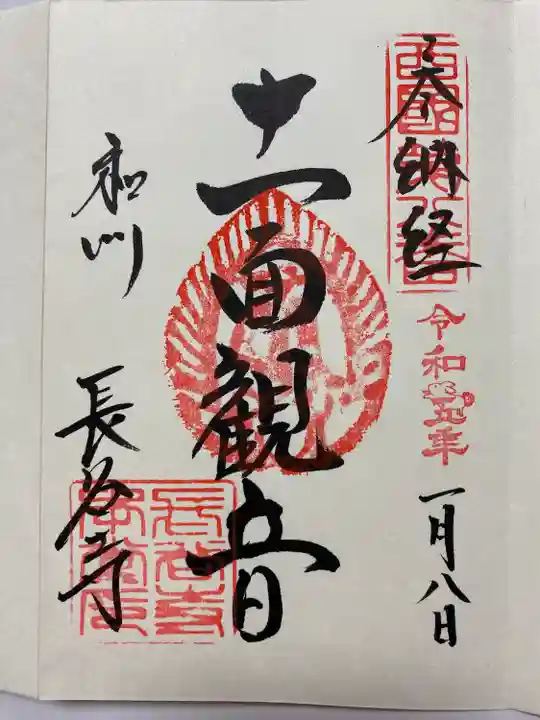 奉納経
令和五年
一月八日
十一面観音
和州
長谷寺